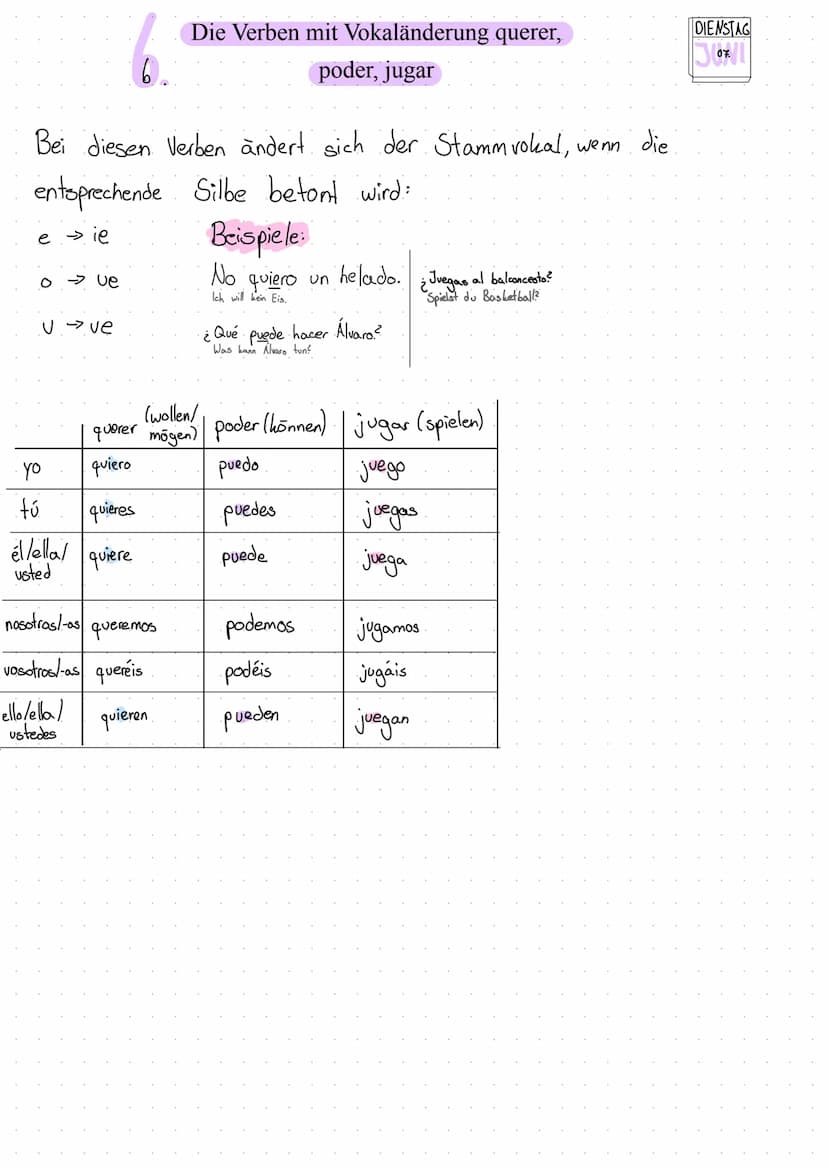 6.
6
Die Verben mit Vokaländerung querer,
poder, jugar
DIENSTAG
JUNI
07
Bei diesen Verben ändert sich der Stammvokal, wenn die
entsprechende Silbe betont wird:
e → ie
Beispiele:
o → ue
No quiero un helado.
Ich will kein Eis.
¿Juegas al balconcesto?
Spielst du Basketball?
u → ue
¿Qué puede hacer Álvaro?
Was kann Álvaro tun?
querer (wollen/mögen) poder (können) jugar (spielen)
yo quiero puedo juego
tú quieres puedes juegas
él/ella/usted quiere puede juega
nosotros/-as queremos podemos jugamos
vosotros/-as queréis podéis jugáis
ello/ella/ustedes quieren pueden juegan